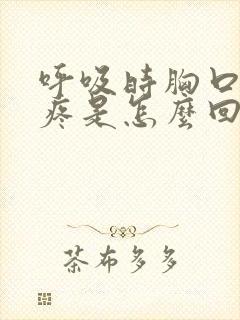 呼吸時胸口
疼是怎麼回
茶布多多